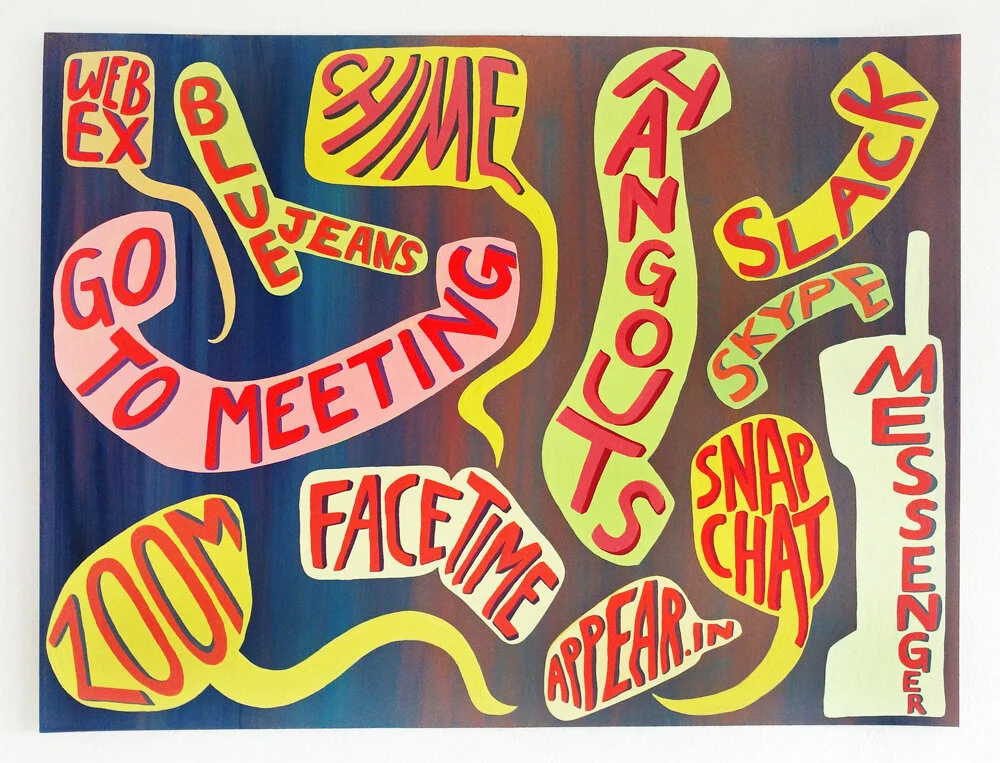 WEB
EX
BLUE
JEANS
CHIME
HANGOUTS
SLACK
GO
TO
MEETING
SKYPE
MESSENGER
SNAP
CHAT
FACETIME
ZOOM
APPEAR.IN